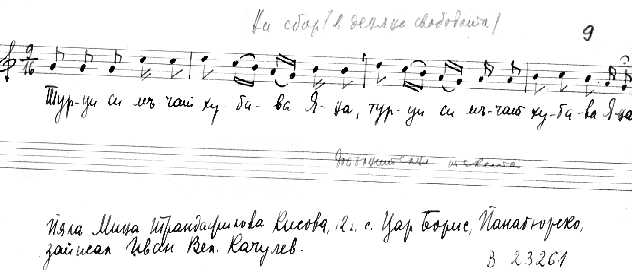 На сбор /в деня на свободата/
9
9
16
Тур-ци си мъ чат ху-ба-ва Я-на, тур-ци си мъ-чат ху-ба-ва Я-на
Пяла Мица Трандафилова Кисова, г. с. Цар Борис, Панагюрско,
записал Иван Вел. Качулев.
В 23261